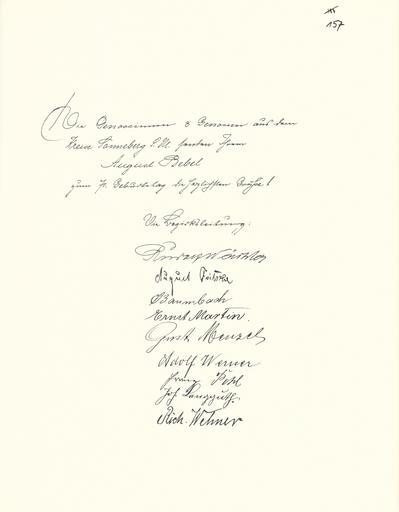 157
Die Genossinnen & Genossen aus dem
Kreise Sonneberg S.M. senden Ihrem
August Bebel
zum 70. Geburtstag die herzlichsten Grüße!
Die Bezirksleitung:
August
Baumbach
Ernst Martin.
Gust Menzel
Adolf Werner
Franz Pohl
Joh Langguth.
Rich. Wehner